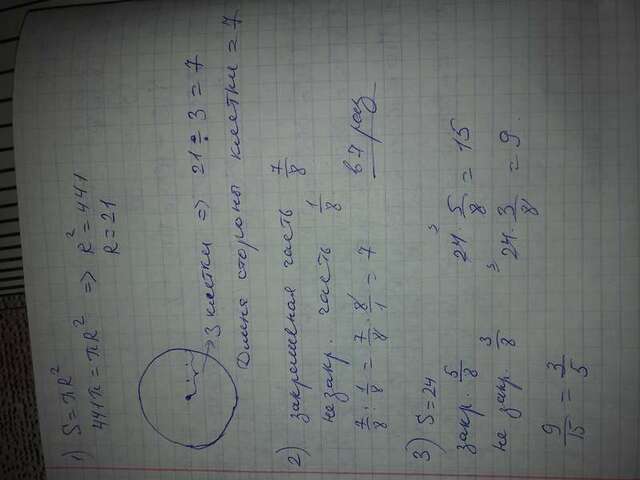 1) S = πR²
441π = πR² => R² = 441
R = 21
3 клетки => 21 ÷ 3 = 7
Длина стороны клетки = 7
2) закрашенная часть 7/8
незакр. часть 1/8
7/8 : 1/8 = 7/8 · 8/1 = 7 в 7 раз
3) S = 24
закр. 5/8
24 · 5/8 = 15
не закр. 3/8
24 · 3/8 = 9
9/15 = 3/5